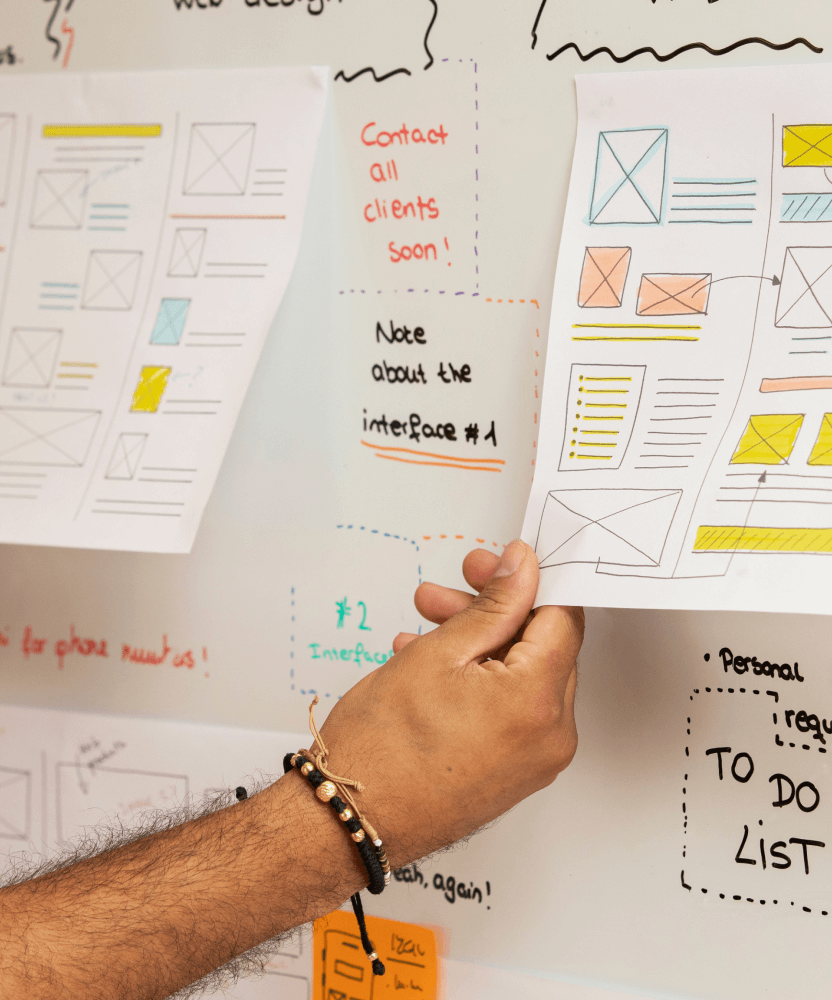 web design
Contact
all
clients
soon!
Note
about the
interface #1
#2
Interface
for phone
!
• Personal
TO DO
LIST
again!